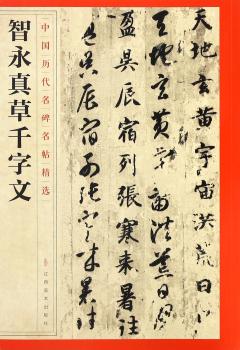 中国历代名碑名帖精选
智永真草千字文
天地玄黄宇宙洪荒日
天地玄黄宇宙洪荒日
盈昃辰宿列張寒来暑往
盈昃辰宿列張寒来暑
江西美术出版社